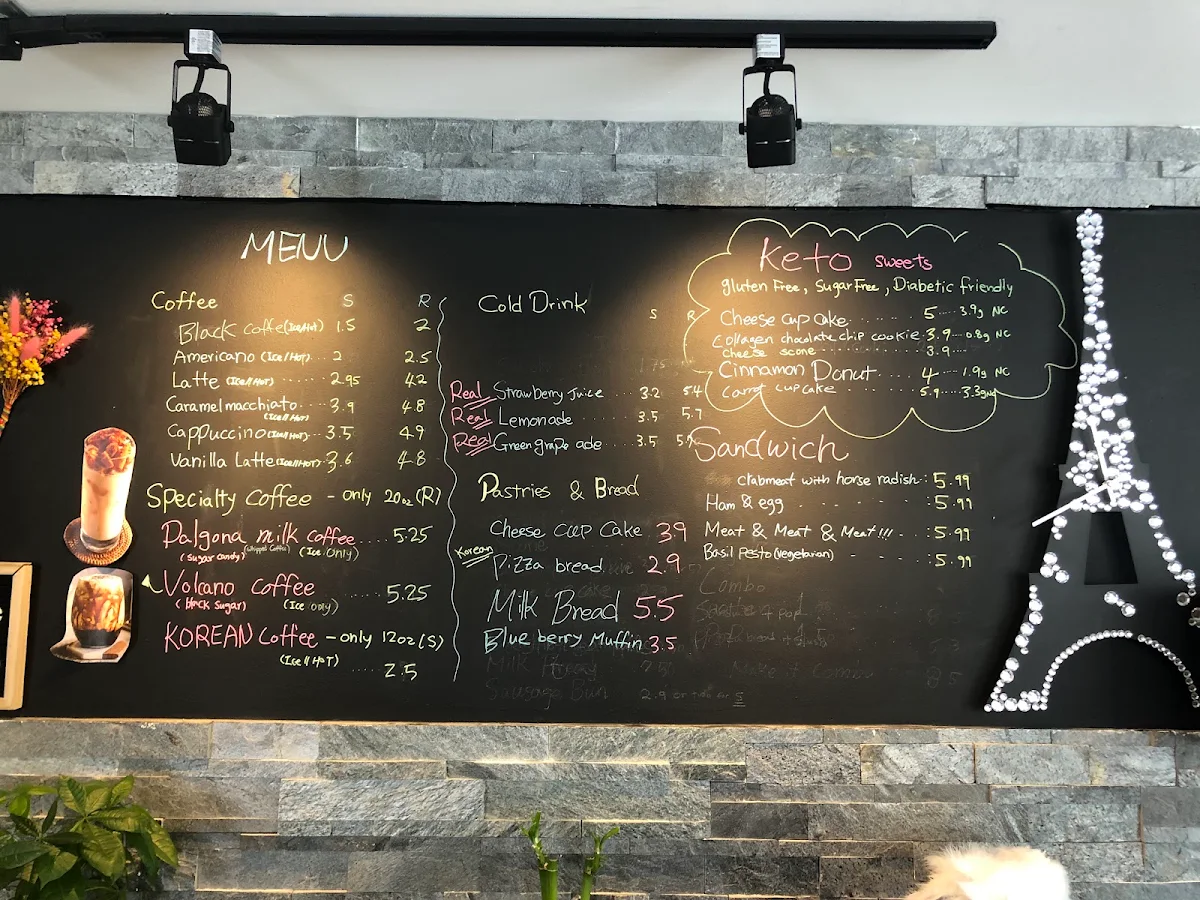 MENU
Coffee S R
Black coffe (Ice/Hot) 1.5 2
Americano (Ice/Hot) ... 2 2.5
Latte (Ice/Hot) ...... 2.95 4.2
Caramel macchiato ... 3.9 4.8
(Ice/Hot)
Cappuccino (Ice/Hot) ... 3.5 4.9
Vanilla Latte (Ice/Hot) .. 3.6 4.8
Specialty Coffee - only 20oz (R)
Dalgona milk coffee ..... 5.25
(Sugar candy) (whipped coffee) (Ice only)
Volcano coffee ..... 5.25
(black sugar) (Ice only)
KOREAN Coffee - only 12oz (S)
(Ice/HOT) .... 2.5
Cold Drink
S R
Real Strawberry Juice 3.2 5.4
Real Lemonade 3.5 5.7
Real Green grape ade ... 3.5
Pastries & Bread
Cheese Cup Cake 3.9
Korean Pizza bread 2.9
Milk Bread 5.5
Blue berry Muffin 3.5
Sausage Bun 2.9
Keto sweets
gluten Free, Sugar Free, Diabetic friendly
Cheese cup cake ..... 5 .... 3.9g NC
Collagen chocolate chip cookie 3.9 .... 0.8g NC
cheese scone .......... 3.9 ....
Cinnamon Donut .... 4 .... 1.9g NC
Carrot cup cake ....... 5.9 .... 3.3g NC
Sandwich
clabmeat with horse radish : 5.99
Ham & egg - - - : 5.99
Meat & Meat & Meat!!! - : 5.99
Basil Pesto (vegetarian) - - : 5.99
Combo